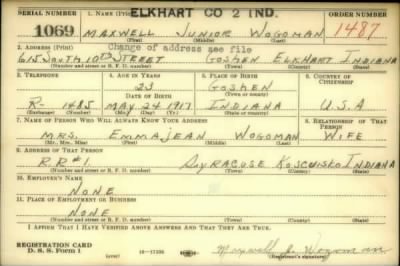 ELKHART CO 2 IND.
SERIAL NUMBER 1. NAME (Print) ORDER NUMBER
1069 MAXWELL JUNIOR WOGOMAN 1487
(First) (Middle) (Last)
2. ADDRESS (Print) Change of address see file
615 SOUTH 10TH STREET GOSHEN ELKHART INDIANA
(Number and street or R. F. D. number) (Town) (County) (State)
3. TELEPHONE 4. AGE IN YEARS 5. PLACE OF BIRTH 6. COUNTRY OF CITIZENSHIP
23 GOSHEN
DATE OF BIRTH (Town or county)
R- 1485 MAY 24 1917 INDIANA U.S.A
(Exchange) (Number) (Mo.) (Day) (Yr.) (State or country)
7. NAME OF PERSON WHO WILL ALWAYS KNOW YOUR ADDRESS 8. RELATIONSHIP OF THAT PERSON
MRS. EMMAJEAN WOGOMAN WIFE
(Mr., Mrs., Miss) (First) (Middle) (Last)
9. ADDRESS OF THAT PERSON
R.R#1 SYRACUSE KOSCUISKO INDIANA
(Number and street or R. F. D. number) (Town) (County) (State)
10. EMPLOYER'S NAME
NONE
11. PLACE OF EMPLOYMENT OR BUSINESS
NONE
(Number and street or R. F. D. number) (Town) (County) (State)
I AFFIRM THAT I HAVE VERIFIED ABOVE ANSWERS AND THAT THEY ARE TRUE.
REGISTRATION CARD
D. S. S. Form 1 Maxwell J. Wogoman